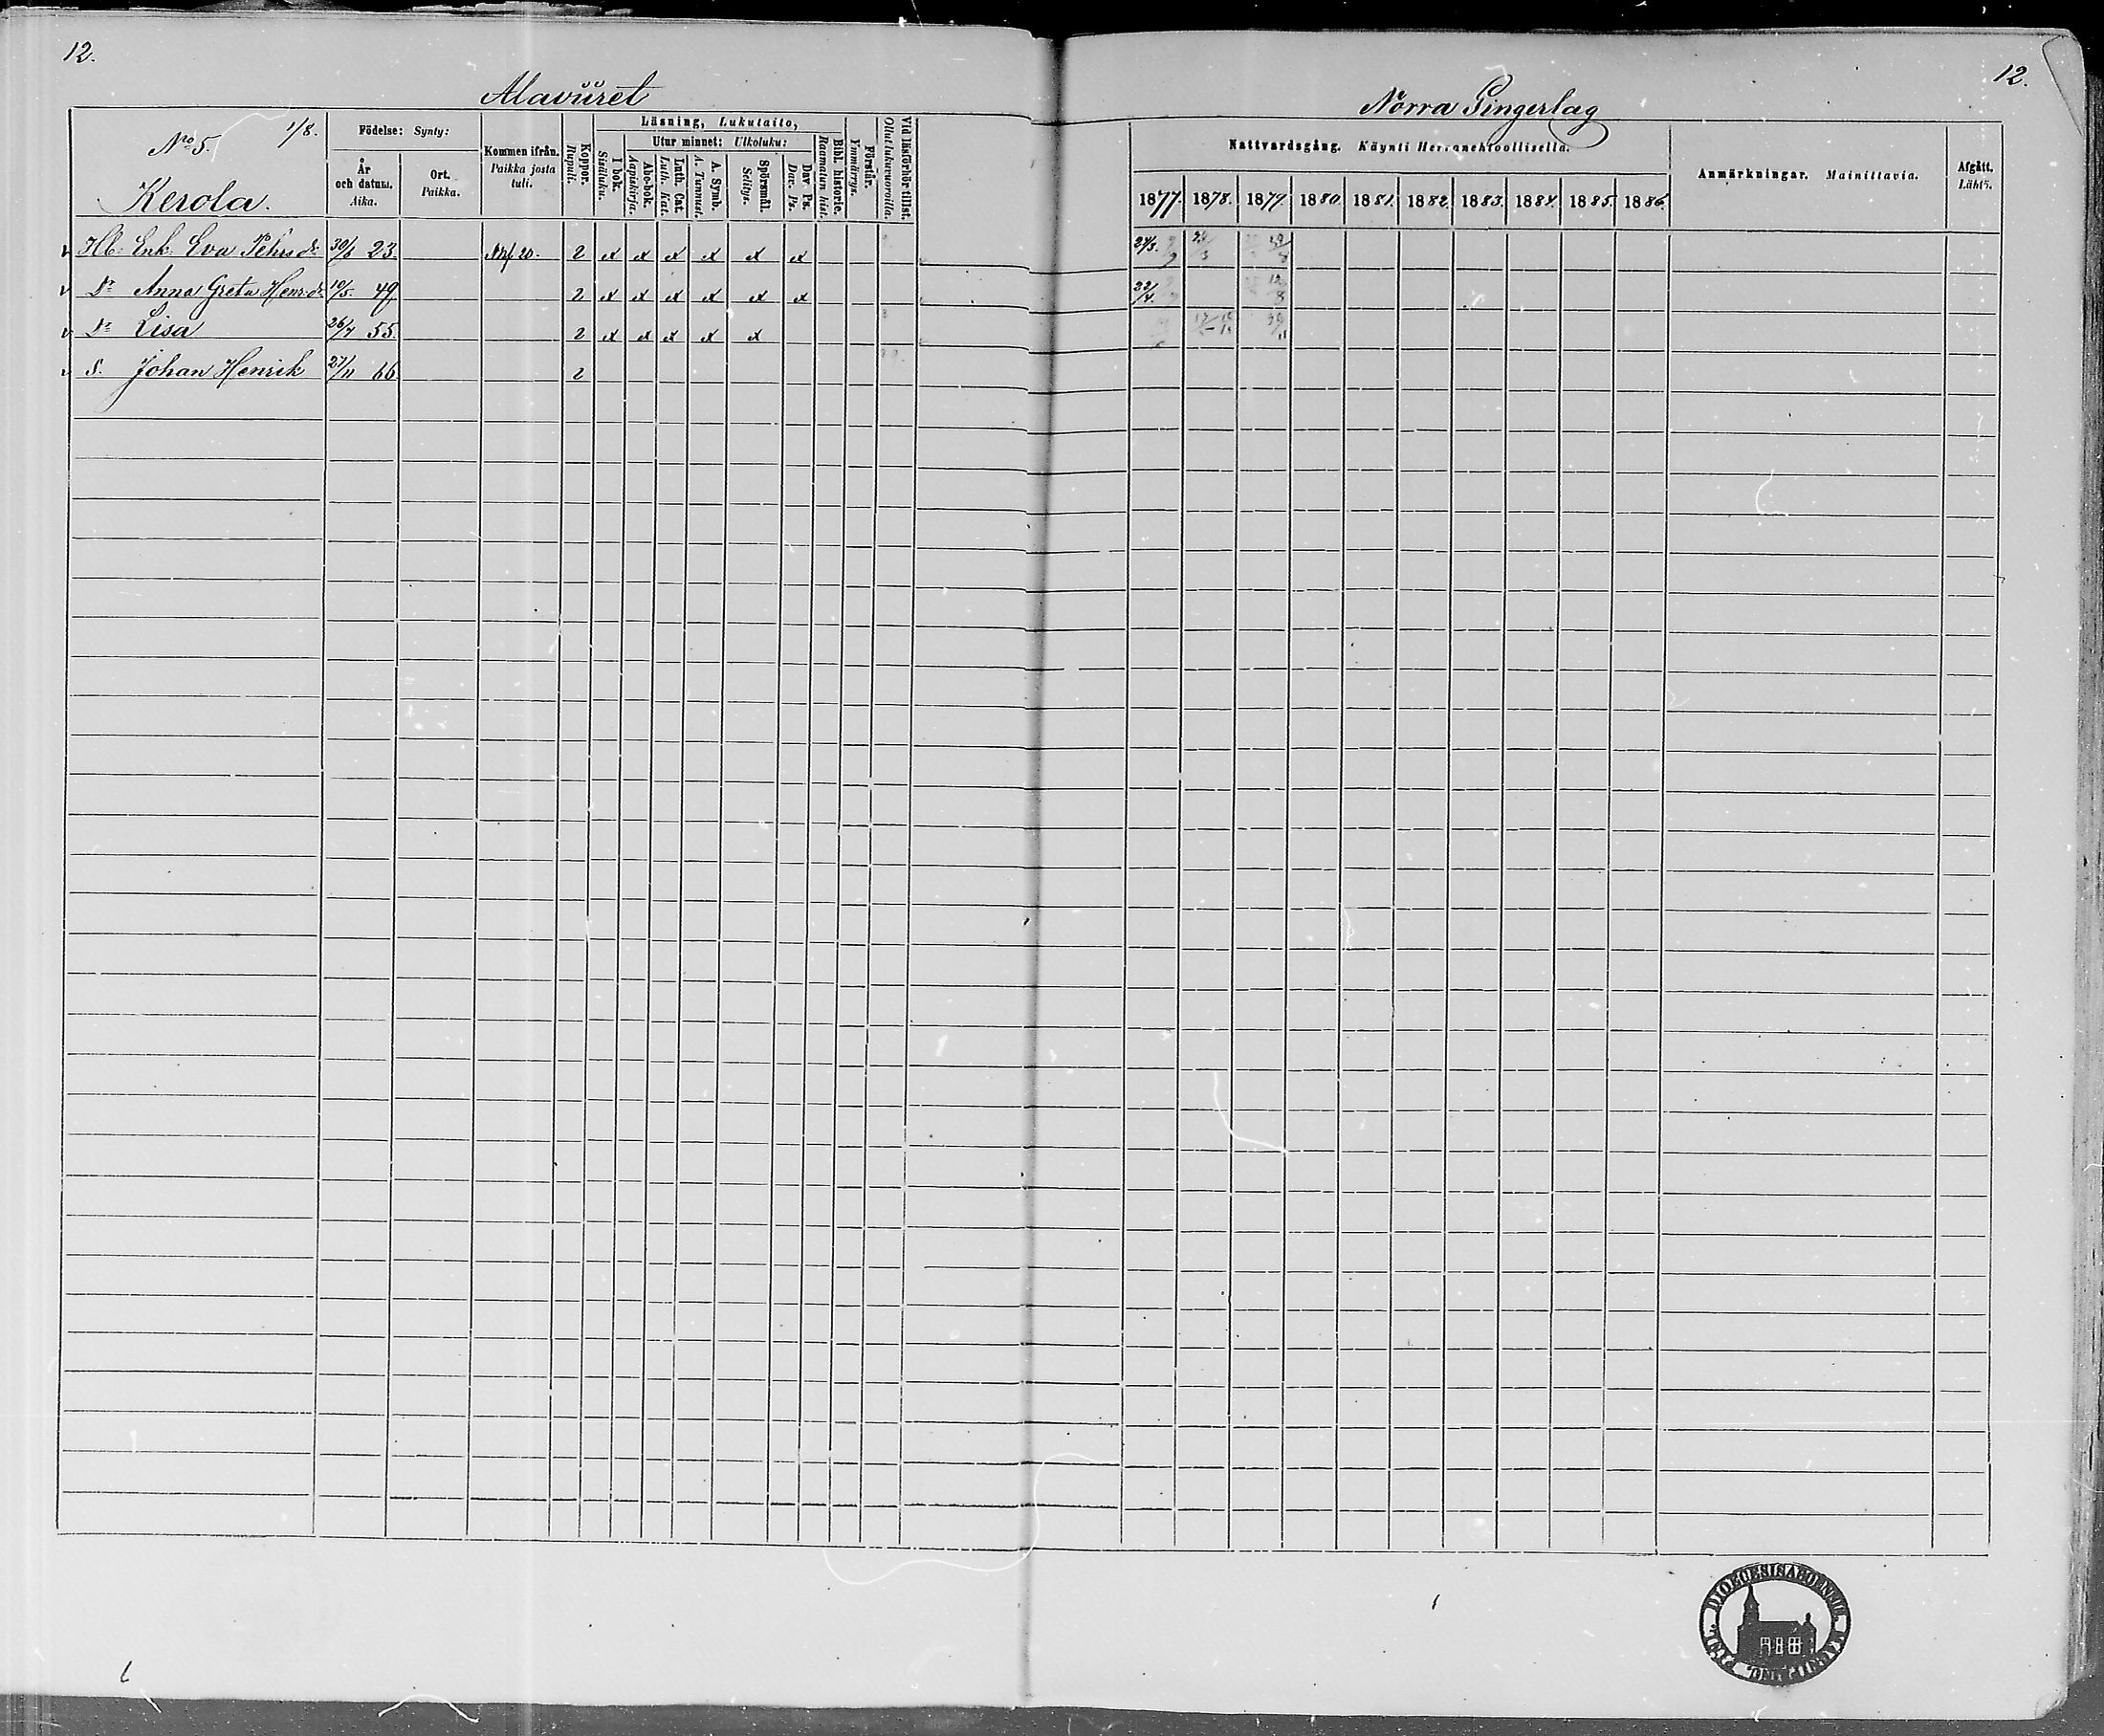 12.
Alaviiret
No 5. 1/8.
Kerola.
Födelse: Synty:
År och datum. Aika.
Ort. Paikka.
Kommen ifrån. Paikka josta tuli.
Koppor. Rupuli.
Läsning, Lukutaito,
I bok. Sisäluku.
Utur minnet: Ulkoluku:
Abc-bok. Aapiskirja.
Luth. Cat. Luth. Kat.
A. Symb. A. Tunnust.
Spörsmål. Selitys.
Dav. Ps. Dav. Ps.
Bibl. historie. Raamatun hist.
Förstår. Ymmärrys.
Vid läsförhör tillst. Ollut lukuvuoroilla.
Hb. Enk. Eva Pehrsdr 30/6 23. 20. 2 x x x x x x
Dr Anna Greta Henr.dr 10/5. 49 2 x x x x x x
Dr Lisa 26/7 55. 2 x x x x x
S. Johan Henrik 27/11 66 2
12.
Norra Gingerlag
Nattvardsgång. Käynti Herranehtoollisella.
1877. 1878. 1879. 1880. 1881. 1882. 1883. 1884. 1885. 1886.
Anmärkningar. Mainittavia.
Afgått. Lähti.
22/4.